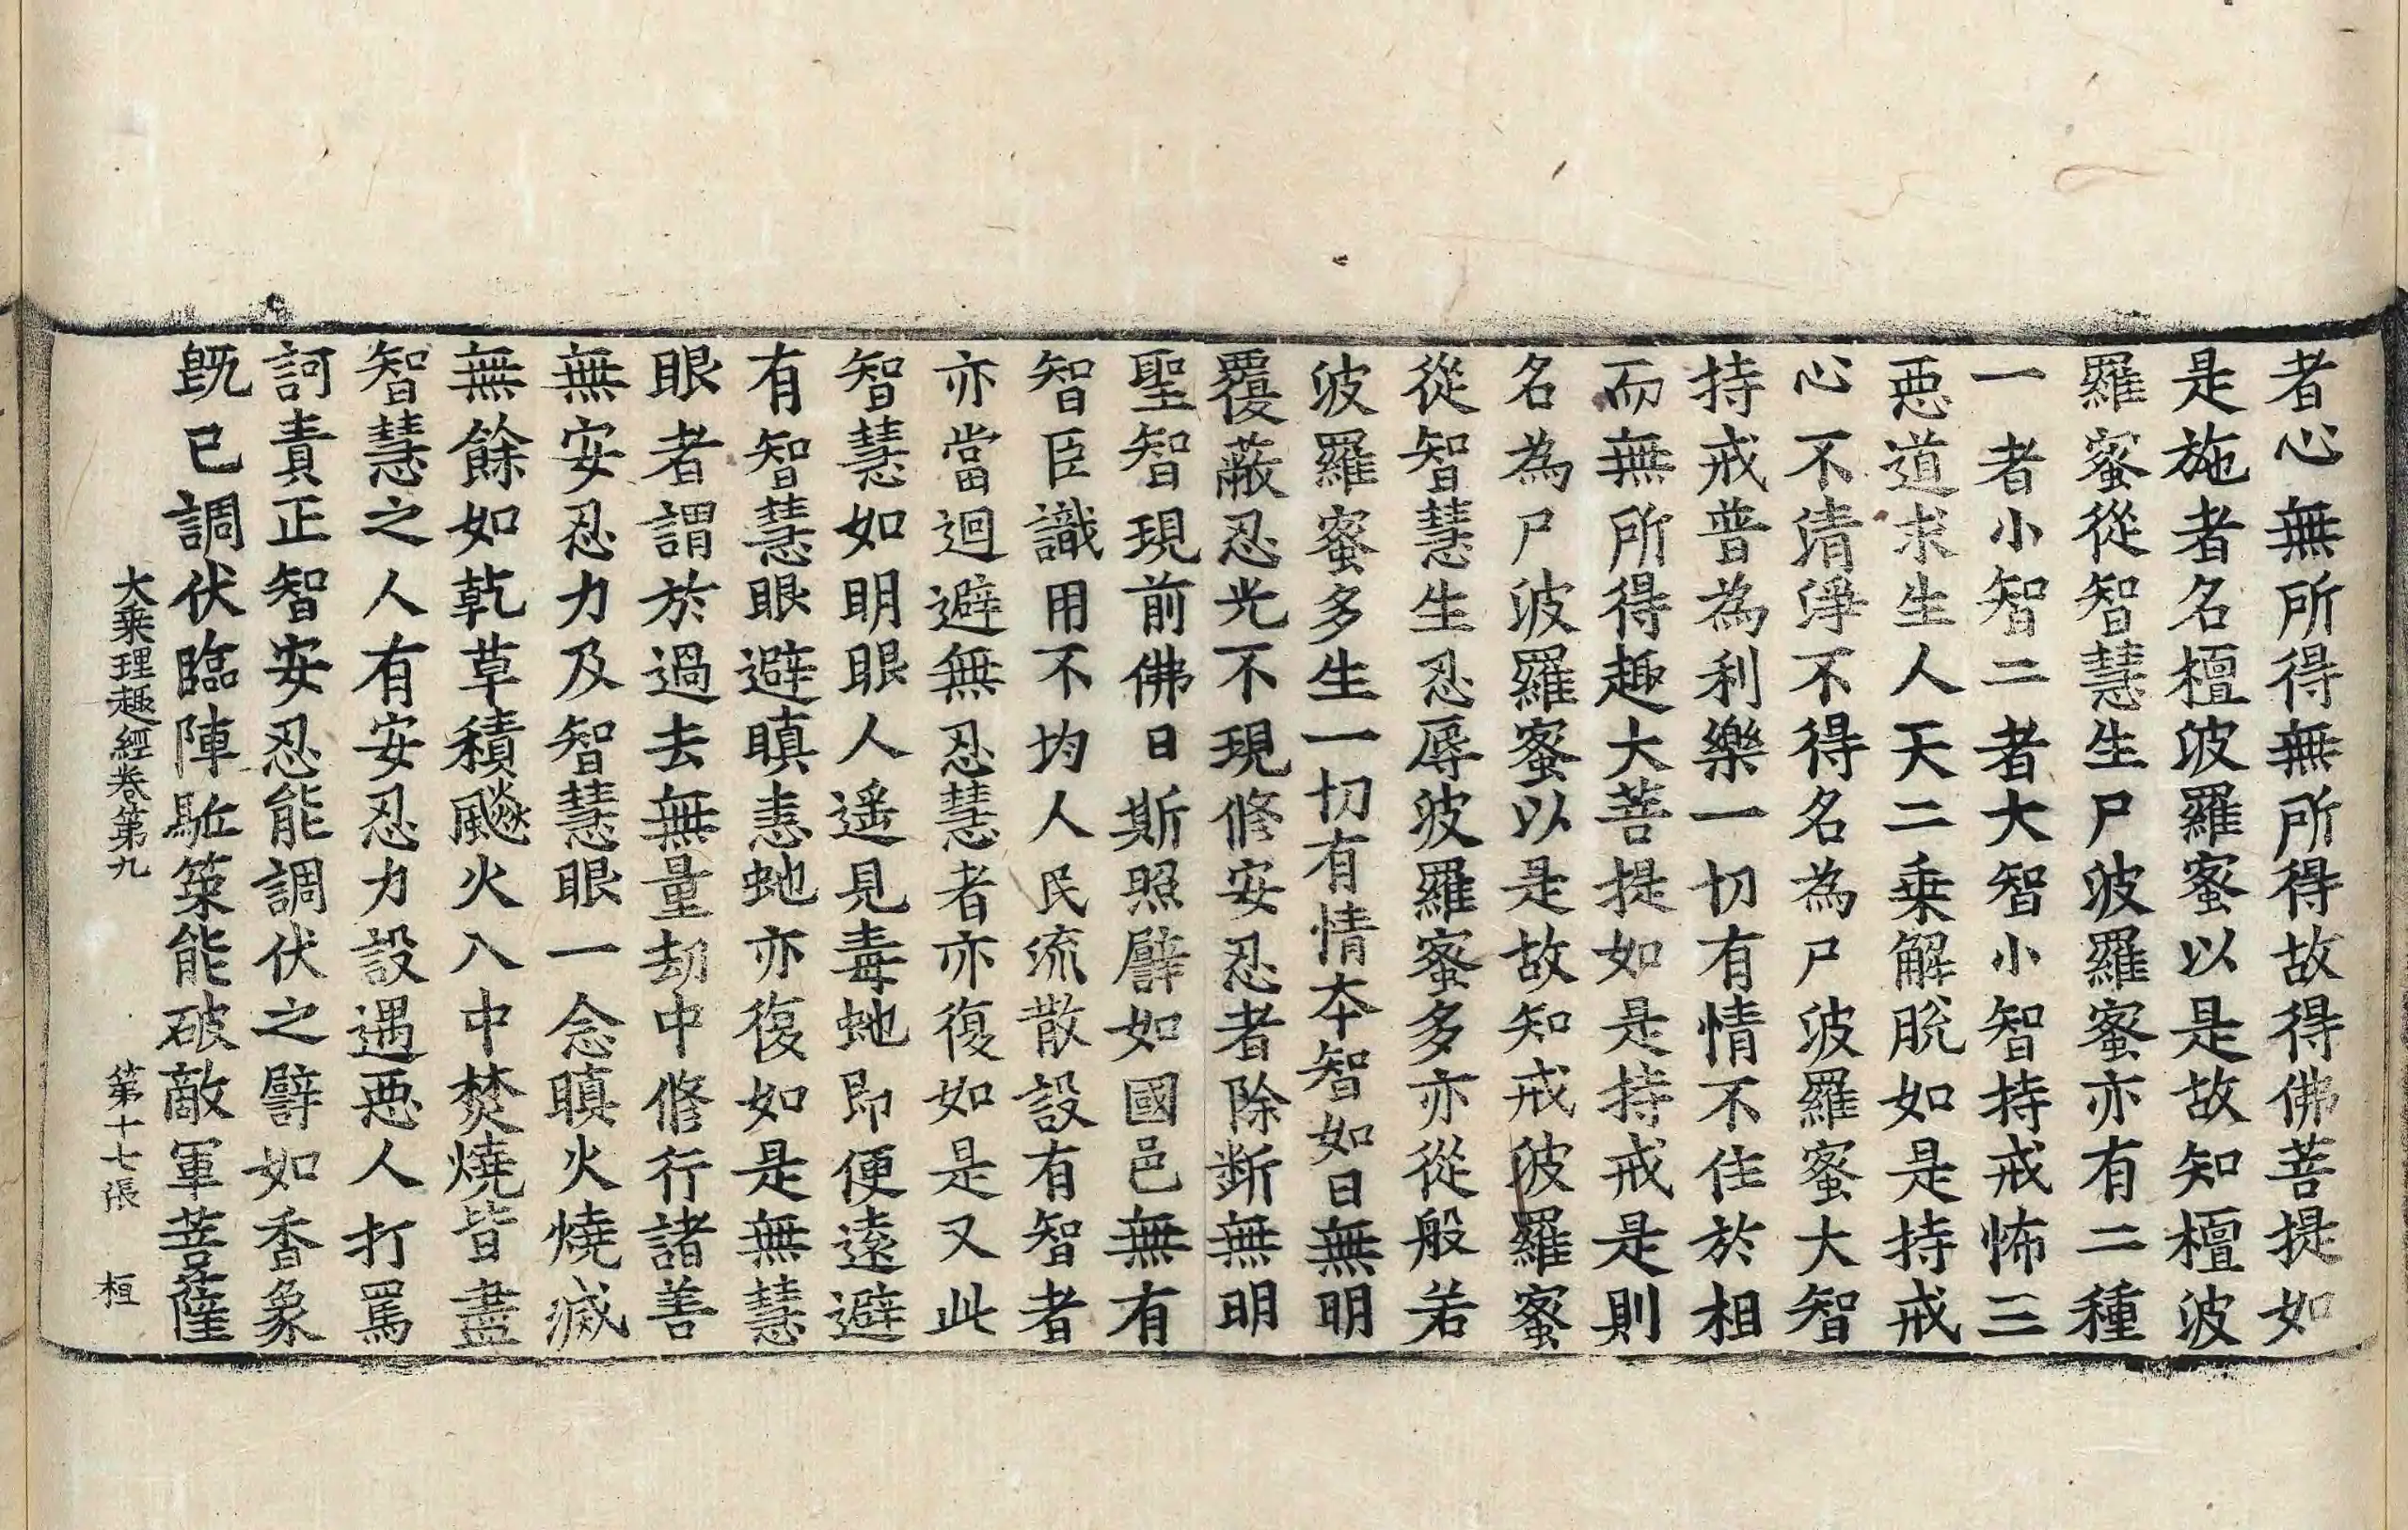 者心無所得無所得故得佛菩提如
是施者名檀波羅蜜以是故知檀波
羅蜜從智慧生尸波羅蜜亦有二種
一者小智二者大智小智持戒怖三
惡道求生人天二乗解脫如是持戒
心不清淨不得名為尸波羅蜜大智
持戒普為利樂一切有情不住於相
而無所得趣大菩提如是持戒是則
名為尸波羅蜜以是故知戒波羅蜜
從智慧生忍辱波羅蜜多亦從般若
波羅蜜多生一切有情本智如日無明
覆蔽忍光不現修安忍者除斷無明
聖智現前佛日斯照譬如國邑無有
智臣識用不均人民流散設有智者
亦當迴避無忍慧者亦復如是又此
智慧如明眼人遥見毒虵即便遠避
有智慧眼避瞋恚虵亦復如是無慧
眼者謂於過去無量劫中修行諸善
無安忍力及智慧眼一念瞋火燒滅
無餘如乾草積飈火入中焚燒皆盡
智慧之人有安忍力設遇惡人打罵
訶責正智安忍能調伏之譬如香象
既已調伏臨陣駈策能破敵軍菩薩
大乗理趣經卷第九 第十七張 桓